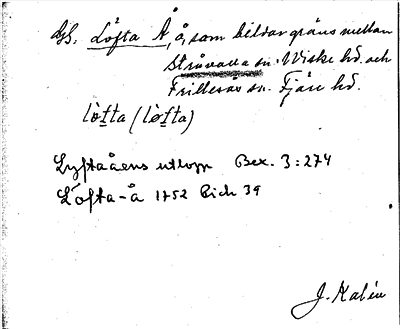 GS. Löfta Å, å, som bildar gräns mellan
Stråvalla sn. Wiske hd. och
Frillesås sn. Fjäre hd.
lòfta (lòfta)
Lyftaåens utlopp Bex. 3:274
Löfta-å 1752 Bich 39
J. Kalén